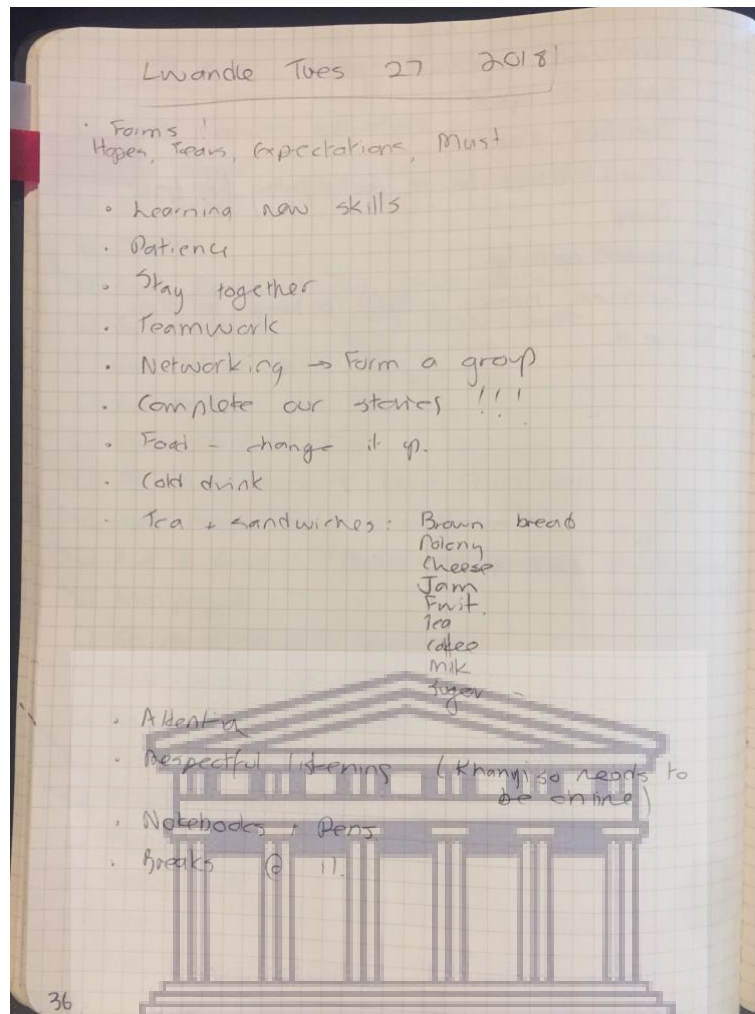 Lwandle Tues 27 2018
• Forms !
Hopes, Fears, Expectations, Must
• Learning new skills
• Patience
• Stay together
• Teamwork
• Networking → Form a group
• Complete our stories !!!
• Food - change it up.
• Cold drink
• Tea + sandwiches: Brown bread
Polony
Cheese
Jam
Fruit.
Tea
Coffee
Milk
Sugar
•
• Respectful listening (Khanyiso needs to
be online)
• Notebooks + Pens
• Breaks @ 11.
36